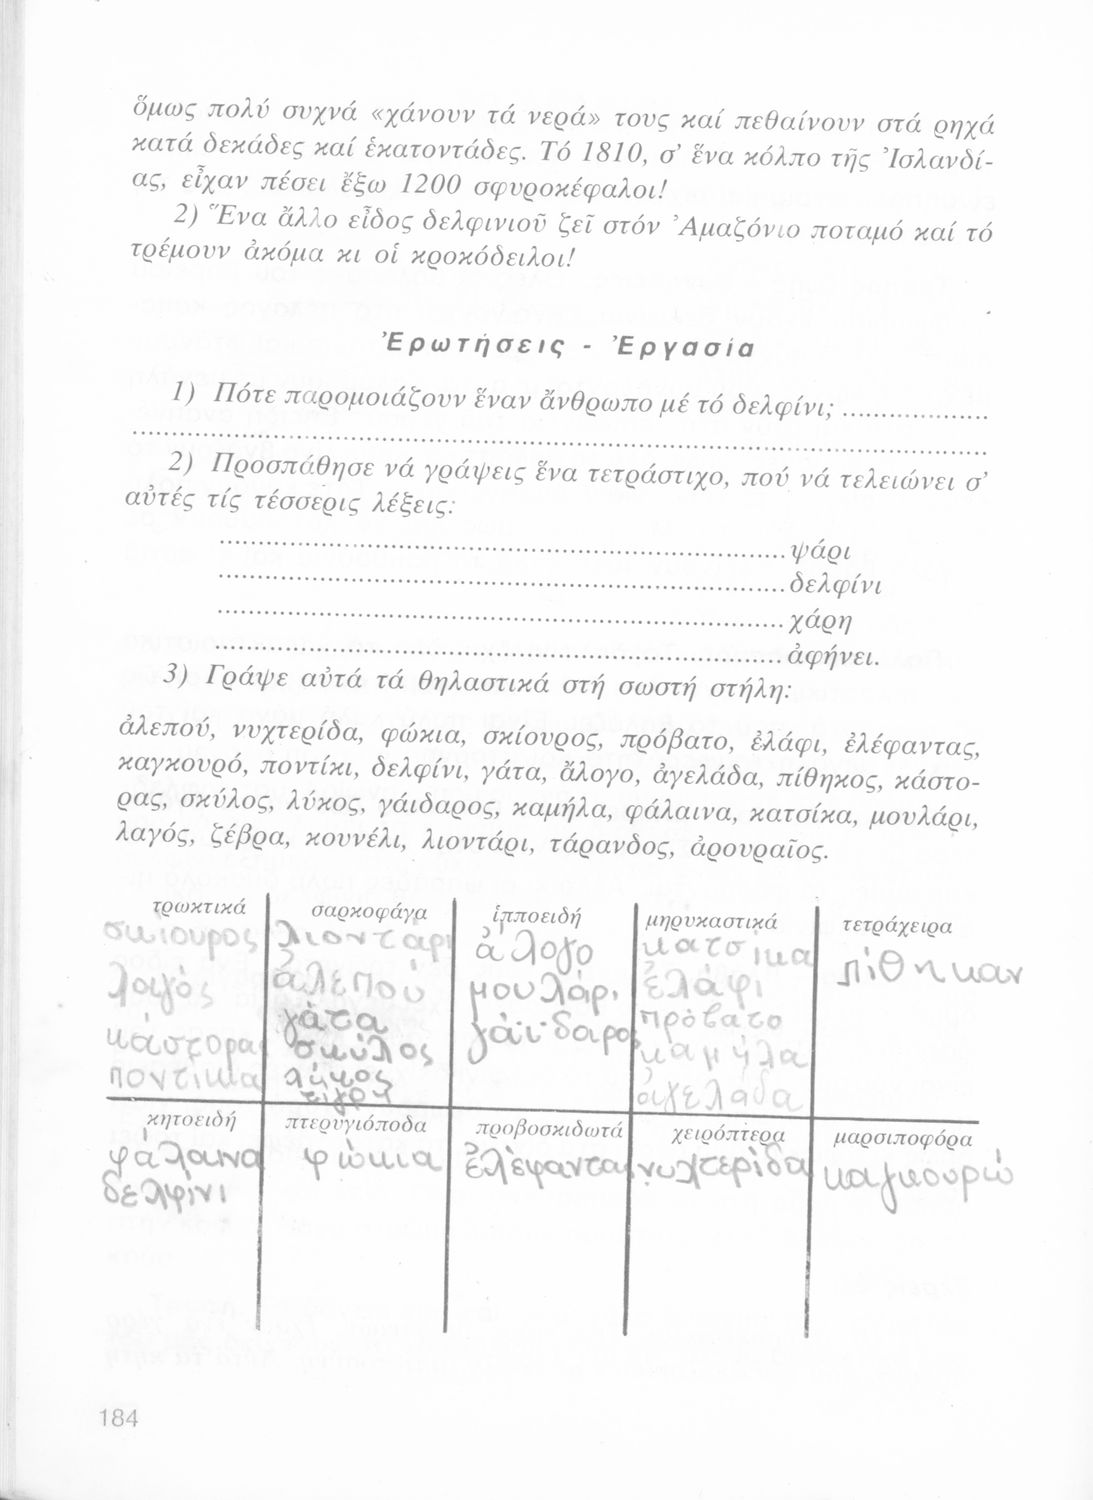 ὅμως πολύ συχνά «χάνουν τά νερά» τους καί πεθαίνουν στά ρηχά
κατά δεκάδες καί ἑκατοντάδες. Τό 1810, σ' ἕνα κόλπο τῆς Ἰσλανδί-
ας, εἶχαν πέσει ἔξω 1200 σφυροκέφαλοι!
2) Ἕνα ἄλλο εἶδος δελφινιοῦ ζεῖ στόν Ἀμαζόνιο ποταμό καί τό
τρέμουν ἀκόμα κι οἱ κροκόδειλοι!
Ἐρωτήσεις - Ἐργασία
1) Πότε παρομοιάζουν ἕναν ἄνθρωπο μέ τό δελφίνι; ..................
2) Προσπάθησε νά γράψεις ἕνα τετράστιχο, πού νά τελειώνει σ'
αὐτές τίς τέσσερις λέξεις:
..................ψάρι
..................δελφίνι
..................χάρη
..................ἀφήνει.
3) Γράψε αὐτά τά θηλαστικά στή σωστή στήλη:
ἀλεπού, νυχτερίδα, φώκια, σκίουρος, πρόβατο, ἐλάφι, ἐλέφαντας,
καγκουρό, ποντίκι, δελφίνι, γάτα, ἄλογο, ἀγελάδα, πίθηκος, κάστο-
ρας, σκύλος, λύκος, γάιδαρος, καμήλα, φάλαινα, κατσίκα, μουλάρι,
λαγός, ζέβρα, κουνέλι, λιοντάρι, τάρανδος, ἀρουραῖος.
τρωκτικά
σκίουρος
λαγός
κάστορας
ποντίκια
σαρκοφάγα
λιοντάρι
ἀλεπού
γάτα
σκύλος
λύκος
τίγρη
ἱπποειδή
ἄλογο
μουλάρι
γάϊδαρος
μηρυκαστικά
κατσίκα
ἐλάφι
πρόβατο
καμήλα
ἀγελάδα
τετράχειρα
πίθηκαν
κητοειδή
φάλαινα
δελφίνι
πτερυγιόποδα
φώκια
προβοσκιδωτά
ἐλέφαντας
χειρόπτερα
νυχτερίδα
μαρσιποφόρα
καγκουρώ
184